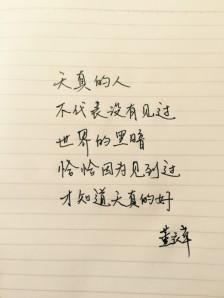 天真的人
不代表没有见过
世界的黑暗
恰恰因为见到过
才知道天真的好